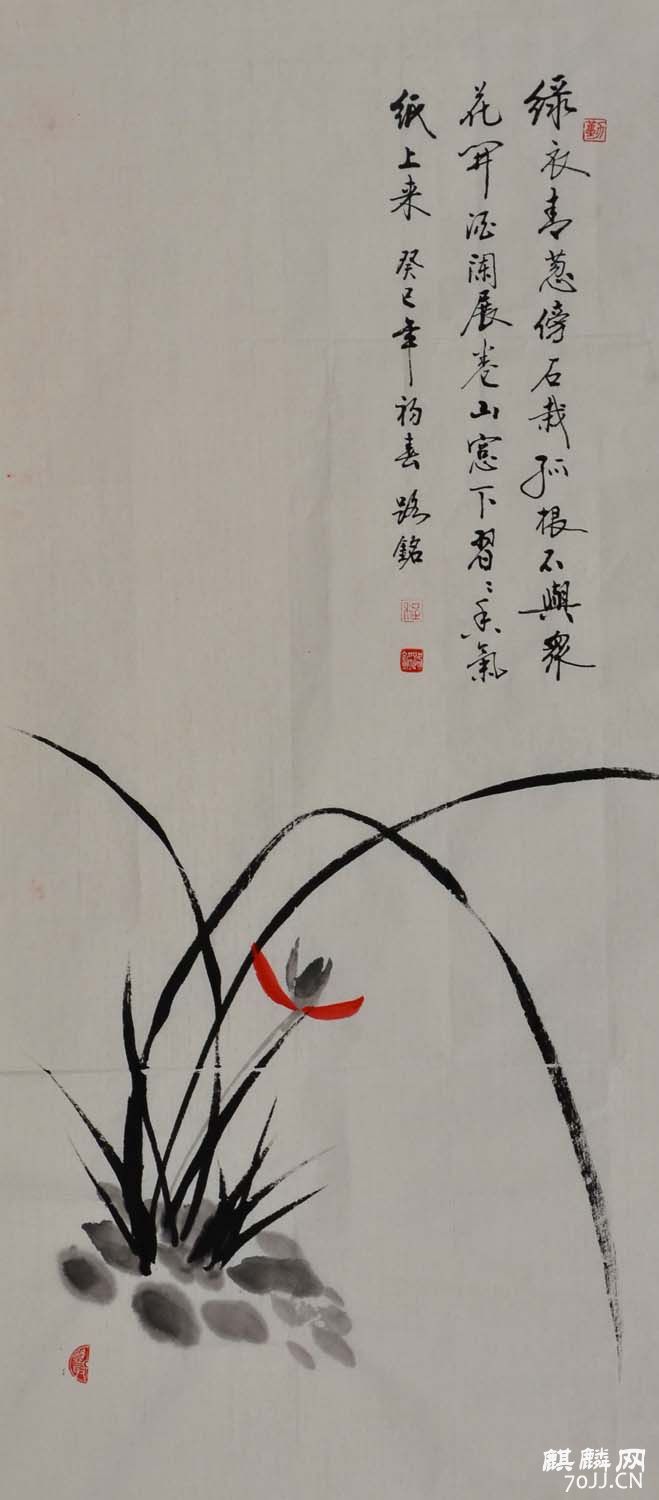 绿衣青葱傍石栽孤根不與眾
花開酒闌展卷山窓下習々香氣
纸上来 癸巳年初春 路銘
勤
麒麟网
70JJ.CN